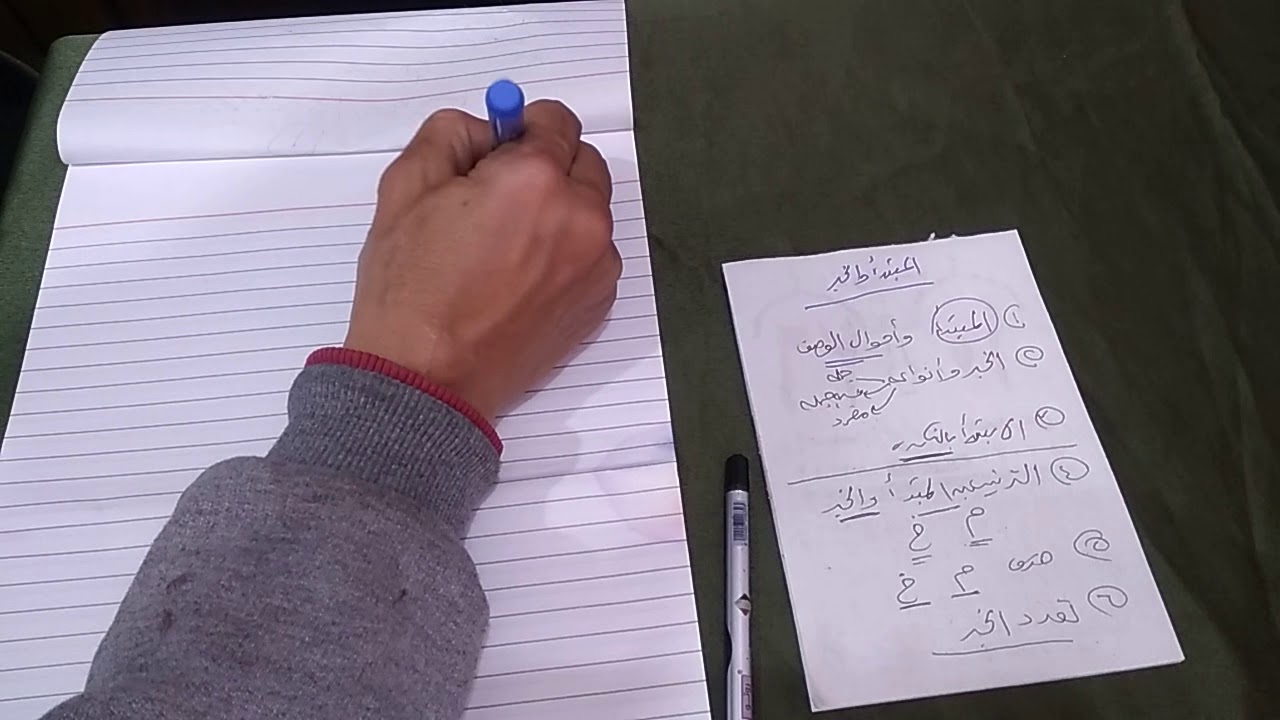 المبتدأ والخبر
١ المبتدأ وأحوال الوصف
٢ الخبر وأنواعه جملة
شبه جملة
مفرد
٣ الابتدأ بالنكره
٤ الترتيب بين المبتدأ والخبر
م خ
٥ حذف م خ
٦ تعدد الخبر